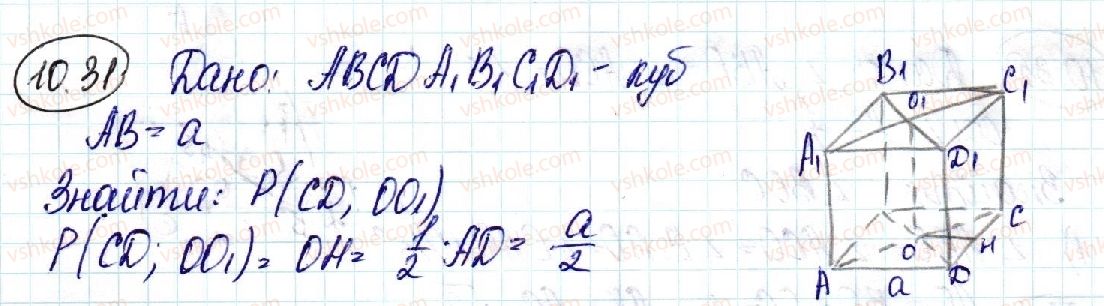 10.31 Дано: ABCDA₁B₁C₁D₁ - куб
AB = a
Знайти: P(CD; OO₁)
P(CD; OO₁) = OH = 1/2 · AD = a/2
B₁ C₁
O₁
A₁ D₁
C
O H
A a D
vshkole.com